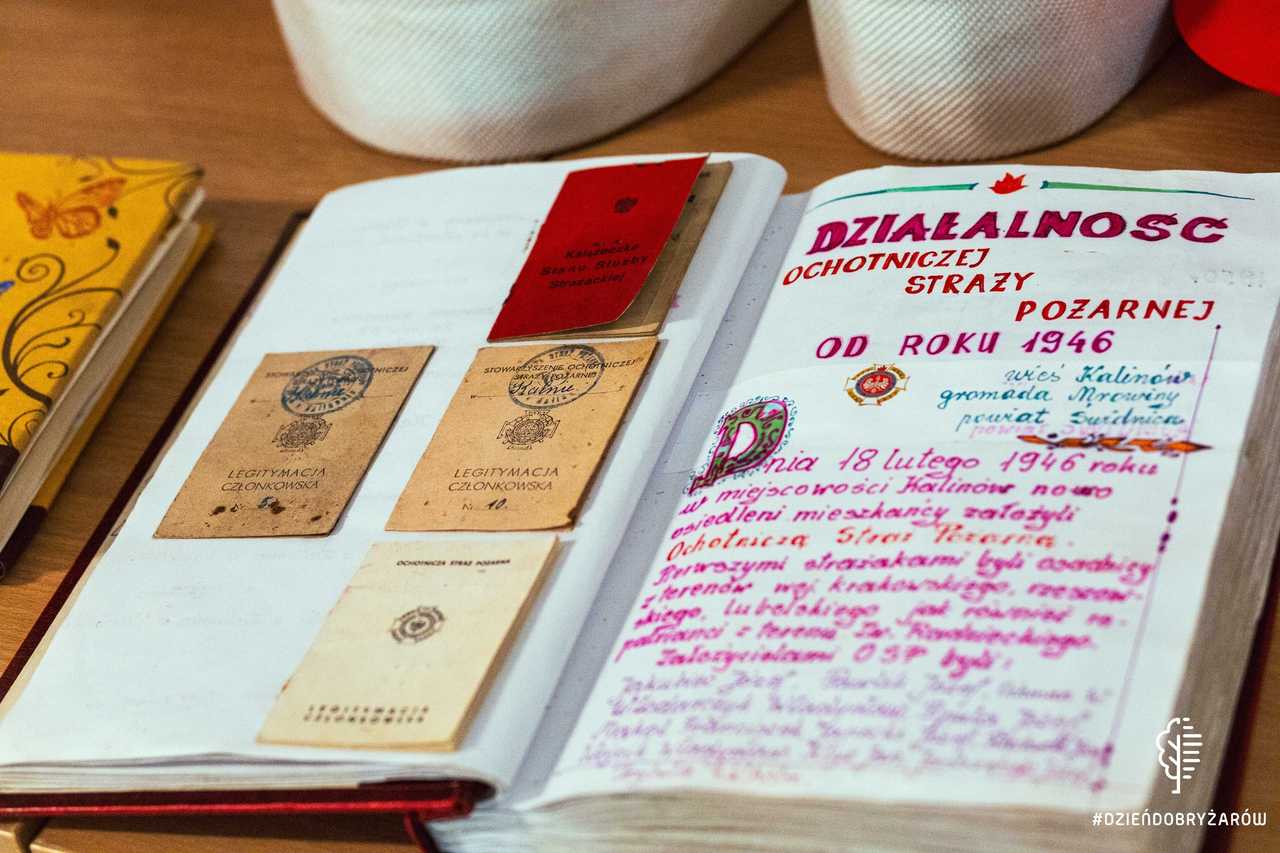 Książeczka
Stanu Służby
Strażackiej
LEGITYMACJA
CZŁONKOWSKA
STOWARZYSZENIE OCHOTNICZEJ
STRAŻY POŻARNEJ
LEGITYMACJA
CZŁONKOWSKA
Nr 10.
OCHOTNICZA STRAŻ POŻARNA
LEGITYMACJA
CZŁONKOWSKA
DZIAŁALNOŚĆ
OCHOTNICZEJ
STRAŻY
POŻARNEJ
OD ROKU 1946
wieś Kalinów
gromada Mrowiny
powiat Świdnica
Dnia 18 lutego 1946 roku
w miejscowości Kalinów nowo
osiedleni mieszkańcy założyli
Ochotniczą Straż Pożarną.
Pierwszymi strażakami byli osadnicy
z terenów woj. krakowskiego, rzeszow-
skiego, lubelskiego jak również re-
patrianci z terenu Zw. Radzieckiego.
Założycielami OSP byli:
#DZIEŃDOBRYŻARÓW